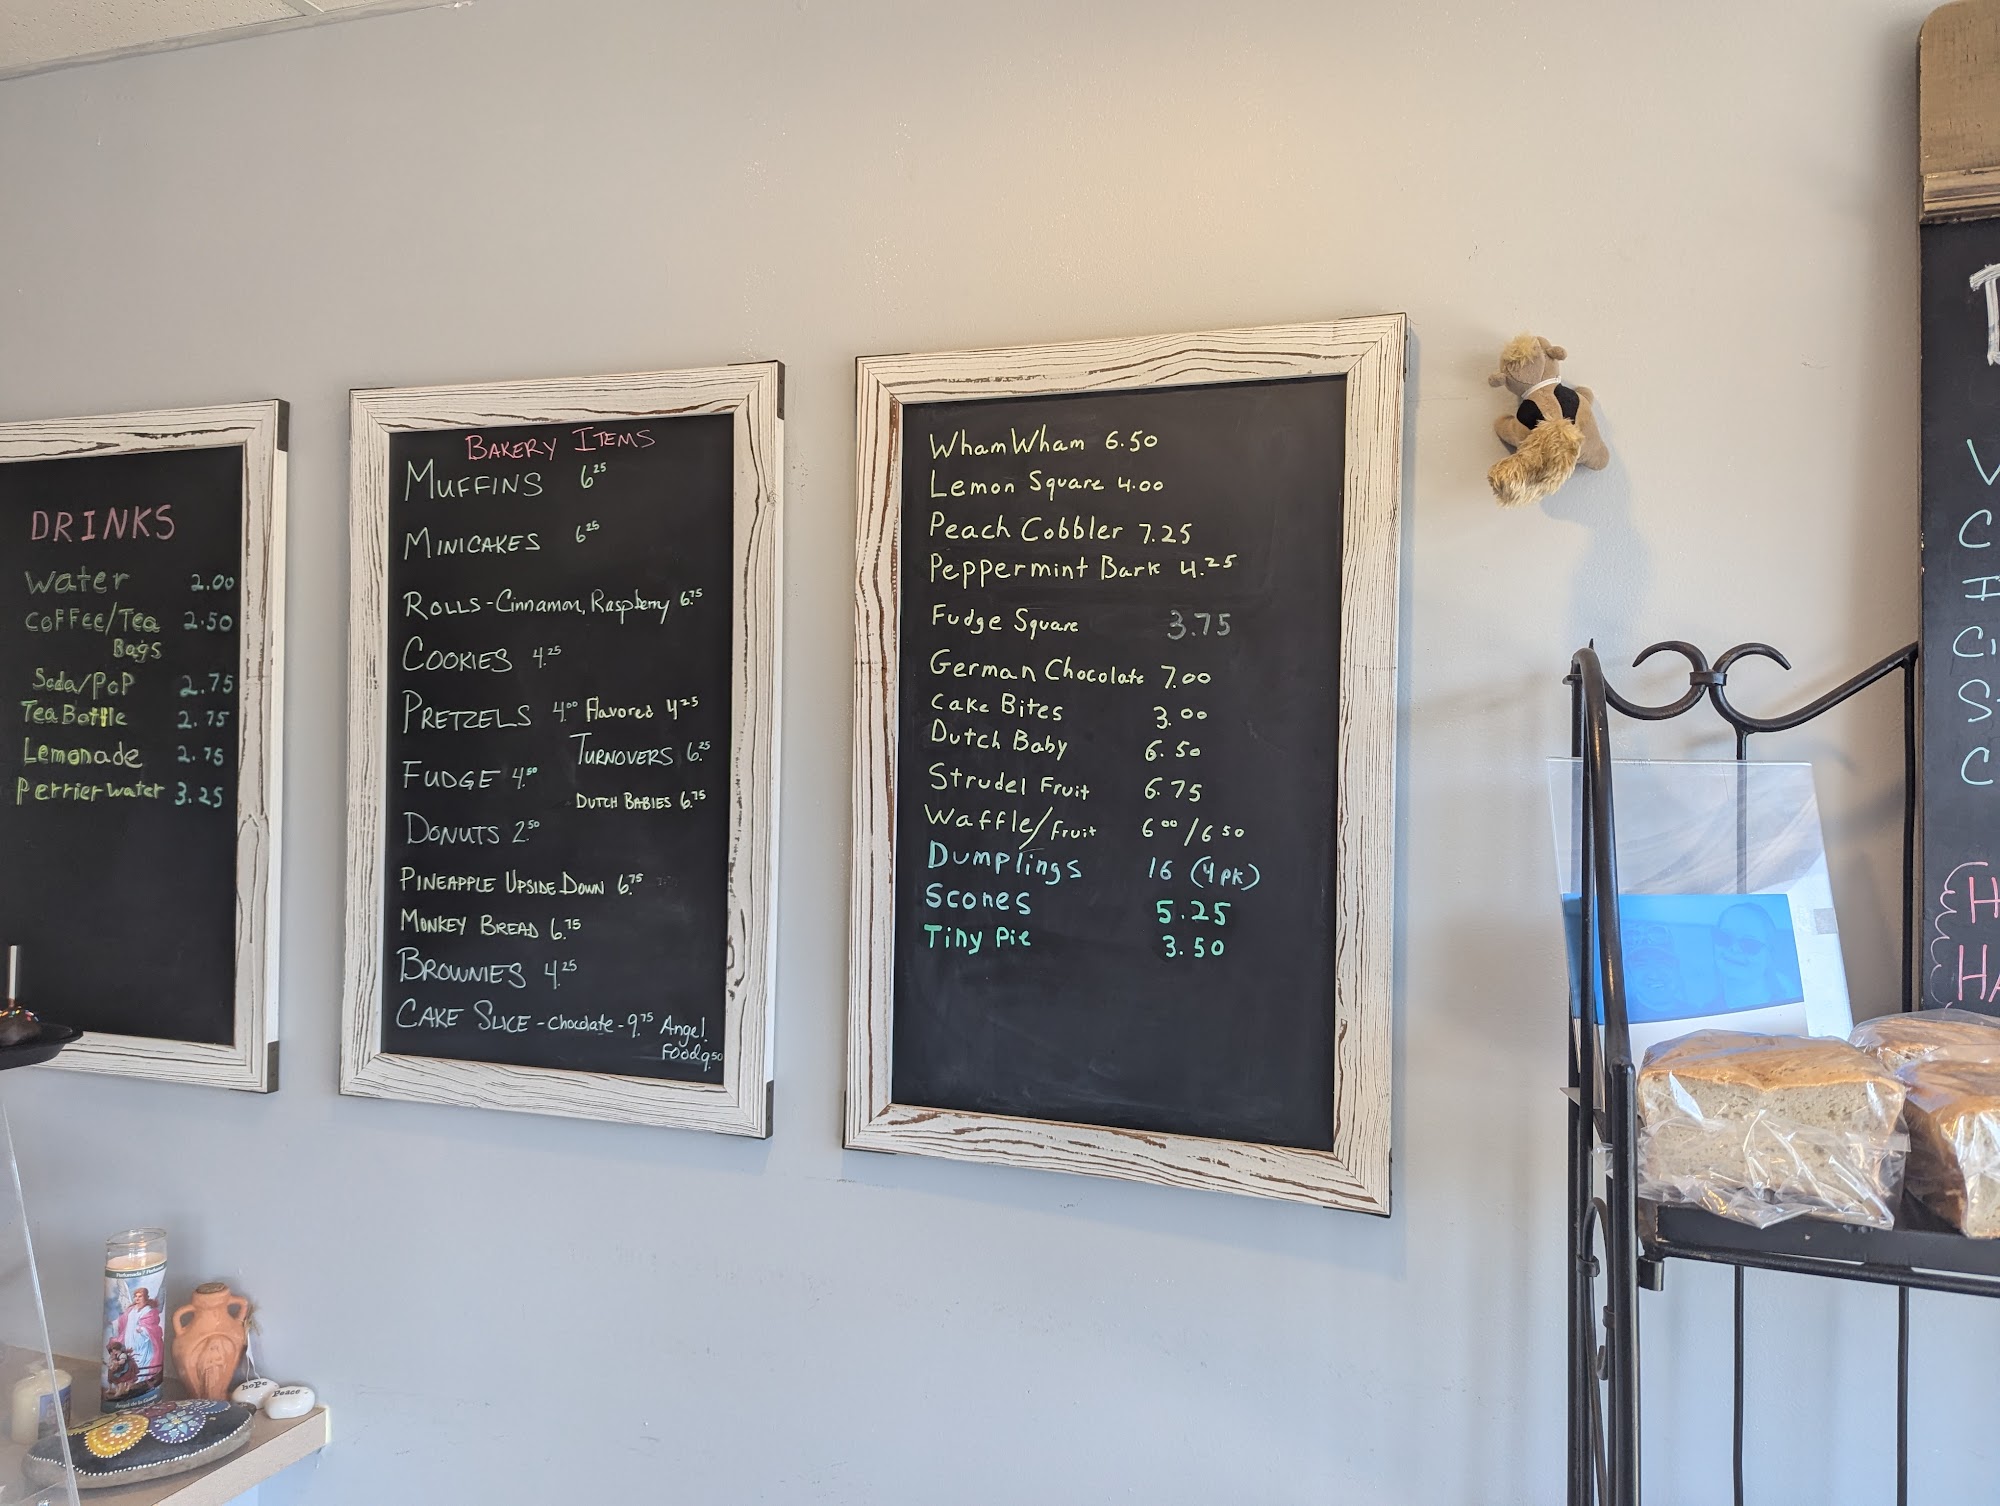 DRINKS
Water 2.00
Coffee/Tea 2.50
Bags
Soda/Pop 2.75
Tea Bottle 2.75
Lemonade 2.75
Perrier water 3.25
BAKERY ITEMS
MUFFINS 6.25
MINICAKES 6.25
ROLLS - Cinnamon, Raspberry 6.75
COOKIES 4.25
PRETZELS 4.00 Flavored 4.25
TURNOVERS 6.25
FUDGE 4.50
DUTCH BABIES 6.75
DONUTS 2.50
PINEAPPLE UPSIDE DOWN 6.75
MONKEY BREAD 6.75
BROWNIES 4.25
CAKE SLICE - Chocolate - 9.75 Angel
Food 9.50
Wham Wham 6.50
Lemon Square 4.00
Peach Cobbler 7.25
Peppermint Bark 4.25
Fudge Square 3.75
German Chocolate 7.00
Cake Bites 3.00
Dutch Baby 6.50
Strudel Fruit 6.75
Waffle/Fruit 6.00/6.50
Dumplings 16 (4pk)
Scones 5.25
Tiny Pie 3.50
hope
Peace